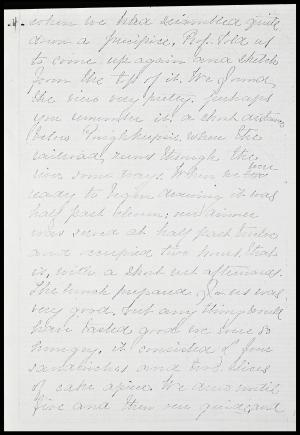 when we had scrambled quite
down a precipice, Prof. told us
to come up again and sketch
from the top of it. We found
the view very pretty. perhaps
you remember it. a short distance
below Poughkeepsie, when the
railroad, runs through the
river some ways. When we were
ready to begin drawing it was
half past eleven; our dinner
was served at half past twelve
and occupied two hours, that
is, with a short rest afterwards.
The lunch prepared for us was
very good, but any thing would
have tasted good we were so
hungry. it consisted of four
sandwiches and two slices
of cake apiece. We drew until
five and then our guide, and